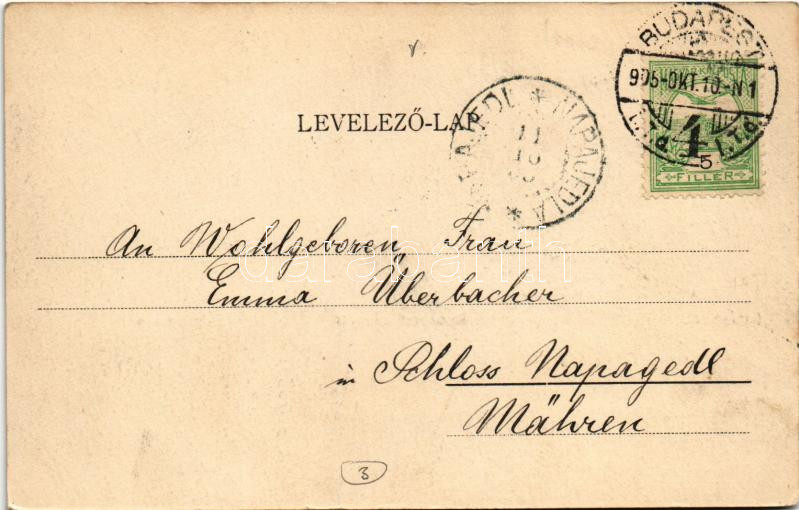 BUDAPEST
905-OKT.10.-N1
5
FILLÉR
LEVELEZŐ-LAP
NAPAJEDL * NAPAJEDLA *
11
10
An Wohlgeboren Frau
Emma Überbacher
in Schloss Napagedl
Mähren
3
darabanth